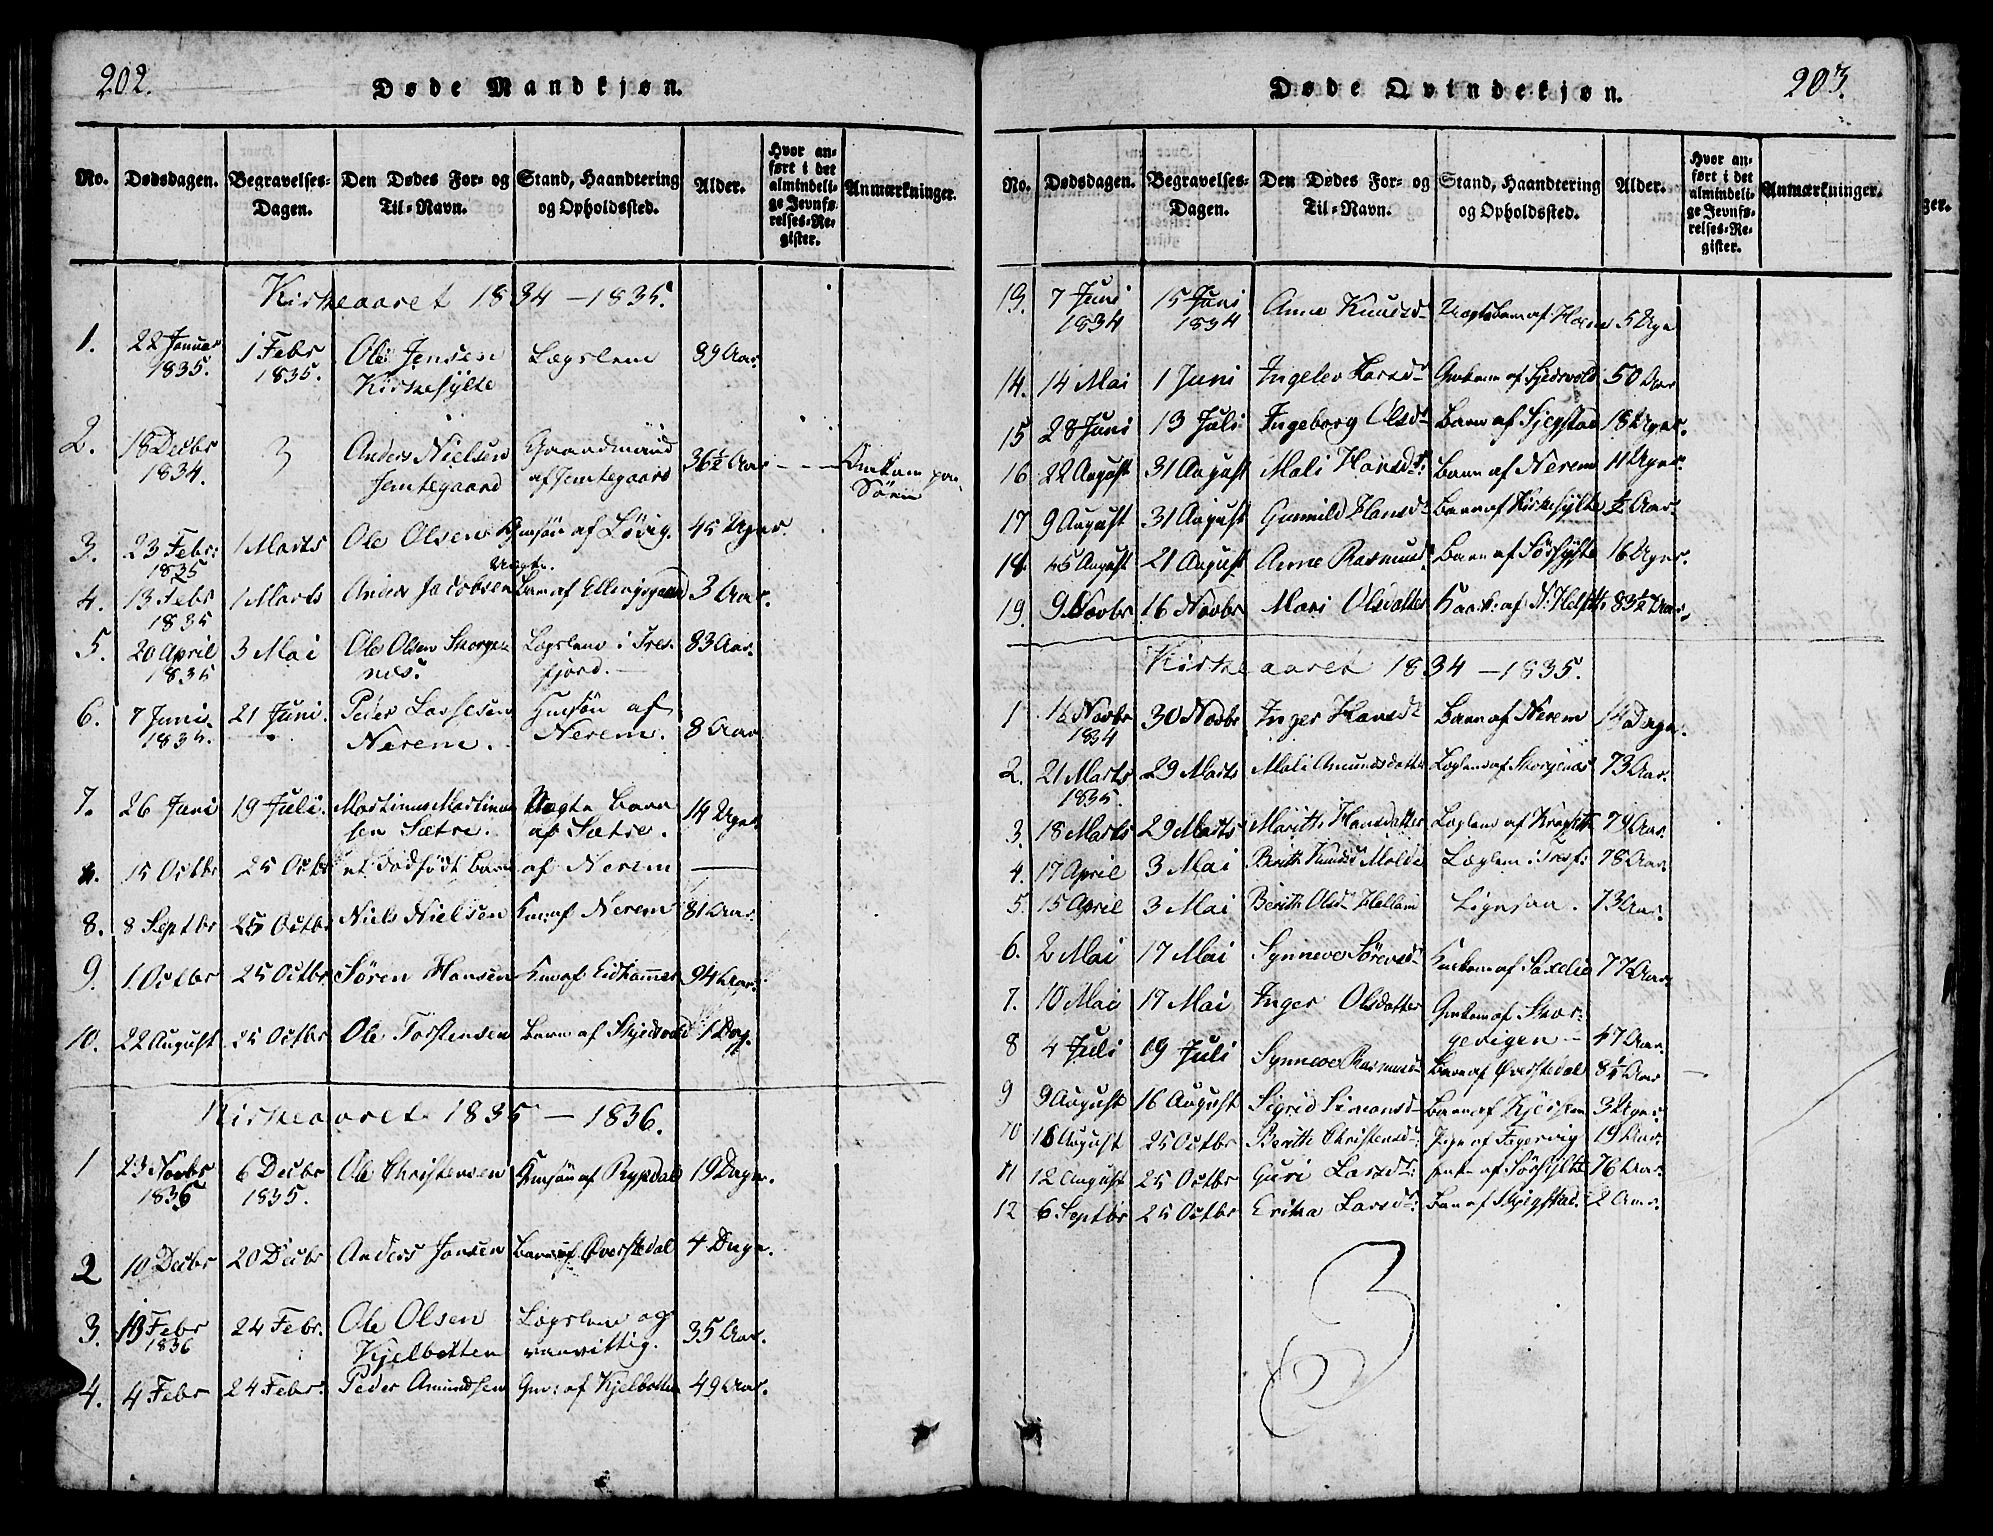 202.
Døde Mandkjøn.
No. Dødsdagen. Begravelses-Dagen. Den Dødes For- og Til-Navn. Stand, Haandtering og Opholdssted. Alder. Hvor anført i det almindelige Jevnførelses-Register. Anmærkninger.
Kirkeaaret 1834 - 1835.
1. 22 Januar 1835. 1 Febr 1835. Ole Jensen Kirkesylte Lægslem 89 Aar.
2. 18 Decbr 1834. Anders Nielsen Jemtegaard Gaardmand af Jemtegaard 36½ Aar - - - Omkom paa Søen
3. 23 Febr: 1835 1 Marts Ole Olsen Huusøn af Løvig. 45 Uger.
4. 13 Febr 1835 1 Marts Anders Jacobsen Uægte Barn af Ellingsgaard 3 Aar.
5. 20 April 1835 3 Mai Ole Olsen Skorgenes. Lægslem i Tresfjord. - 83 Aar.
6. 7 Juni 1835. 21 Juni. Peder Lassesen Nerem. Huusøn af Nerem. 8 Aar
7. 26 Juni 19 Juli. Martinus Martinussen Sætre. Uægte Barn af Sætre. 14 Uger
15 Octbr 25 Octbr et dødfødt Barn af Nerem —
8. 8 Septbr 25 Octbr Niels Nielsen Kaar af Nerem 81 Aar.
9. 1 Octbr 25 Octbr Søren Hansen Kaar af Eidhammer 94 Aar.
10. 22 August 25 Octbr Ole Torstensen Barn af Skjedsvold 1 Dag.
Kirkeaaret 1835 - 1836.
1 23 Novbr 1835 6 Decbr 1835. Ole Christensen Huusøn af Rypdal 19 Dage.
2 10 Decbr 20 Decbr Anders Jonsen Barn af Øverstedal 4 Dage.
3. 13 Febr 1836 24 Febr. Ole Olsen Kjelbotten Lægslem og vanvittig. 35 Aar.
4. 4 Febr 24 Febr: Peder Amundsen Gm: af Kjelbotten 49 Aar.
203.
Døde Qvindekjøn.
No. Dødsdagen. Begravelses-Dagen. Den Dødes For- og Til-Navn. Stand, Haandtering og Opholdssted. Alder. Hvor anført i det almindelige Jevnførelses-Register. Anmærkninger.
13. 7 Juni 1834 15 Juni 1834 Anne Knudsd. Uægte Barn af Hære 5 Uger
14. 14 Mai 1 Juni Ingelev Larsd. Gmkone af Sjedsvold 50 Aar
15 28 Juni 13 Juli Ingeborg Olsd. Barn af Sjegstad 18 Uger.
16 22 August 31 August Mali Hansd: Barn af Nerem 11 Uger.
17 9 August 31 August Gunild Hansd. Barn af Kirkesylte ½ Aar.
18. 15 August 21 August Anne Rasmusd. Barn af Sørsylte 16 Uger.
19. 9 Novbr 16 Novbr Mari Olsdatter Kaark: af N. Helset 83½ Aar.
Kirkeaaret 1834 - 1835.
1 16 Novbr 1834 30 Novbr Inger Hansd. Barn af Nerem 14 Dage.
2. 21 Marts 1835. 29 Marts Mali Amundsdatter Læglem af Skorgenes 73 Aar.
3. 18 Marts 29 Marts Marith Hansdatter Læglem af 79 Aar.
4. 17 April 3 Mai Berith Knudsd. Molde Læglem i Tresf: 78 Aar.
5. 15 April 3 Mai Berith Olsd. Helland Lignsaa. 73 Aar.
6. 2 Mai 17 Mai Synneve Sørensd. Kaarkone af Saxelie 77 Aar.
7. 10 Mai 17 Mai Inger Olsdatter Gmkone af Skorgevigen - 47 Aar.
8 4 Juli 19 Juli Synneve Rasmusd. Barn af Øverstedal 8½ Aar
9 9 August 16 August Sigrid Simonsd. Barn af Kjersem 3 Uger
10 16 August 25 Octbr Berithe Christensd. Pige af Figervig 19 Aar.
11 12 August 25 Octbr Guri Larsd: af Sørsylte 76 Aar.
12 6 Septbr 25 Octbr Erika Larsd: Barn af Skjegstad. 2 Aar.